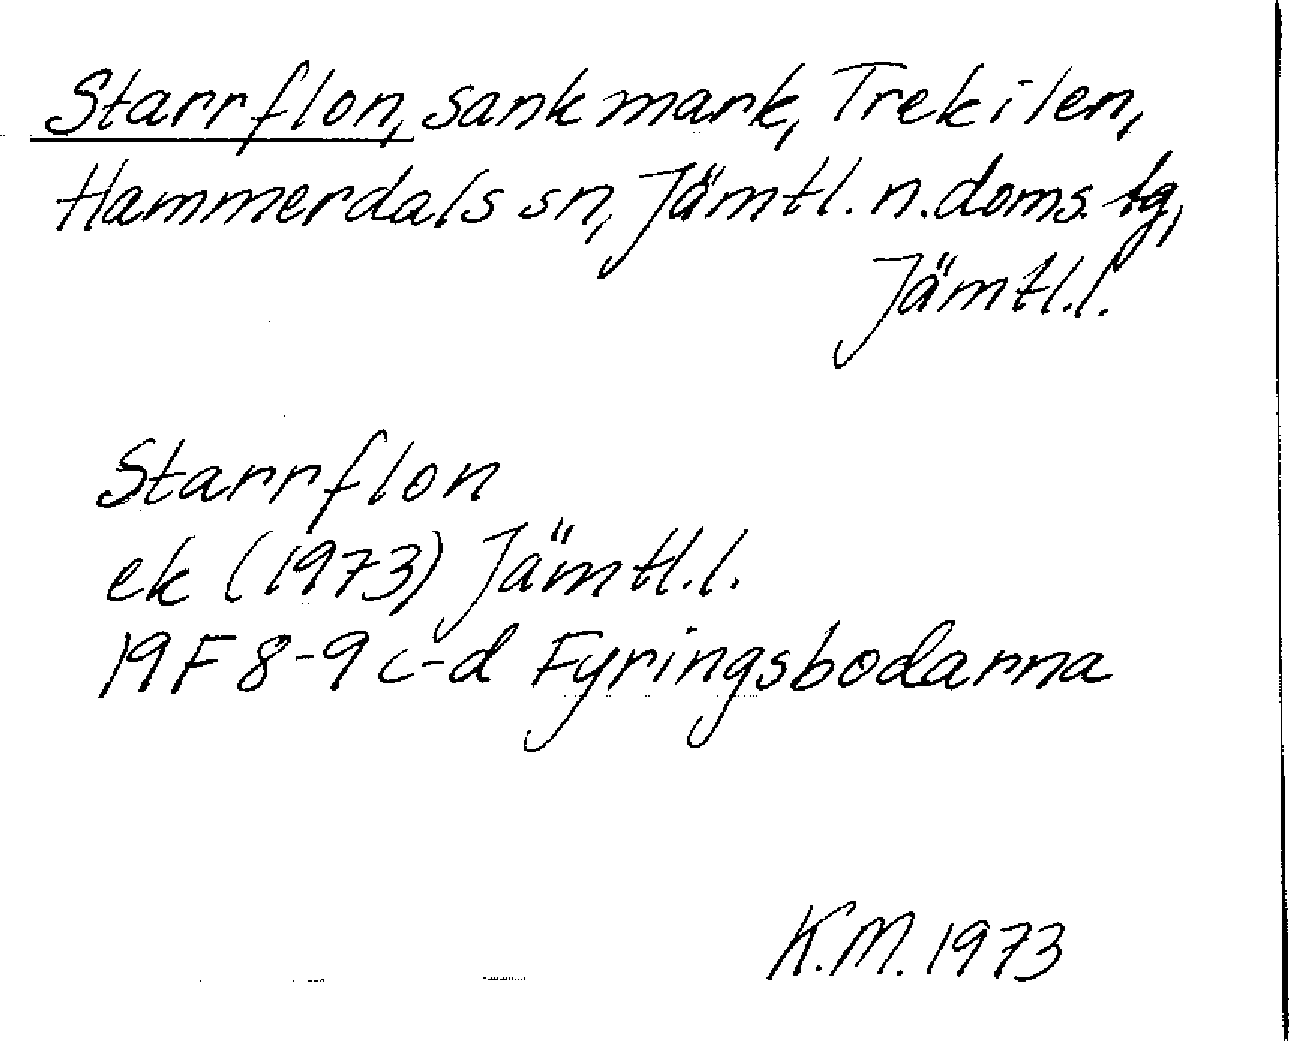 Starrflon, sankmark, Trekilen,
Hammerdals sn, Jämtl. n. doms. tg,
Jämtl.l.
Starrflon
ek (1973) Jämtl.l.
19F 8-9 c-d Fyringsbodarna
K.M. 1973